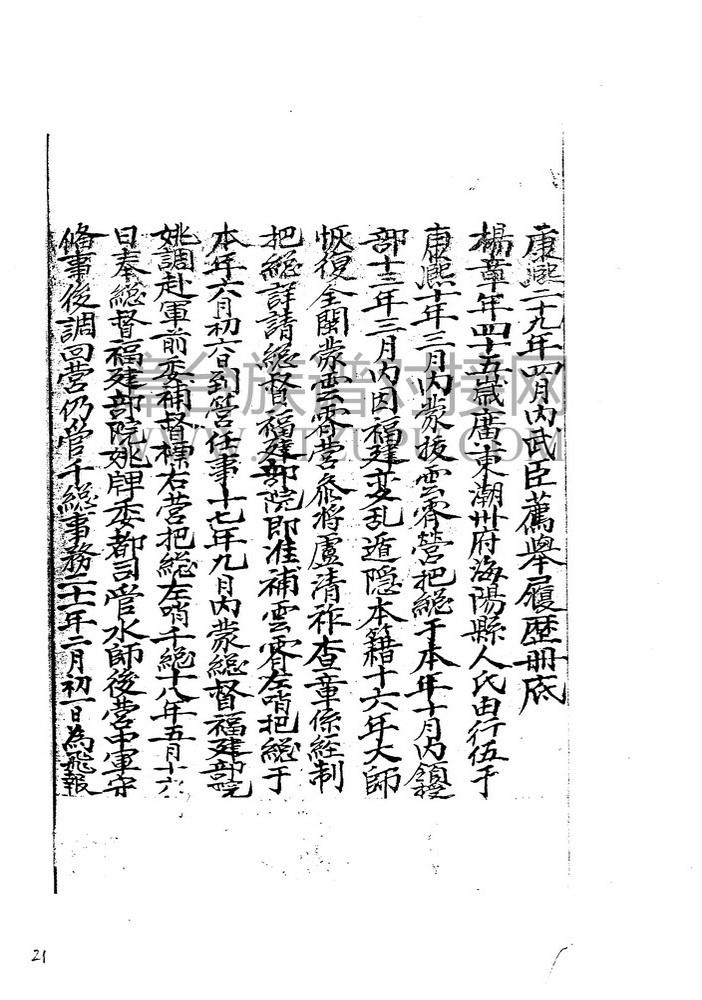 康熙二十九年四月內武臣薦舉履歷冊底
楊章年四十五歲廣東潮州府海陽縣人氏由行伍于
康熙十年三月內蒙拔雲霄營把總于本年十月內領
部十三年三月內因福建变乱遁隱本籍十六年大師
恢復全閩蒙雲霄營叅將盧清祚查章係經制
把總詳請總督福建部院即准補雲霄左哨把總于
本年六月初六日到營任事十七年九月內蒙總督福建部院
姚調赴軍前委補督標右營把總左哨千總十八年五月十六
日奉總督福建部院姚牌委都司管水師後營中軍守
俻事後調回營仍管千總事務二十一年二月初一日為飛報
章台族谱对接网
21